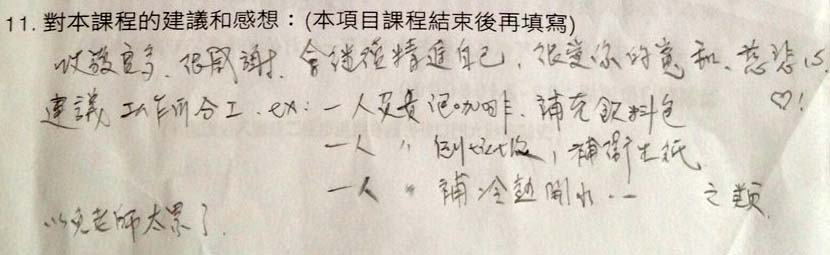 11. 對本課程的建議和感想：(本項目課程結束後再填寫)
收穫良多、很感謝、會繼續精進自己，很愛你的寬和、慈悲心
建議 工作所分工. ex: 一人負責泡咖啡、補充飲料包 ♡!
一人 〃 倒垃圾，補衛生紙
一人 〃 補冷熱開水...... 之類
以免老師太累了.